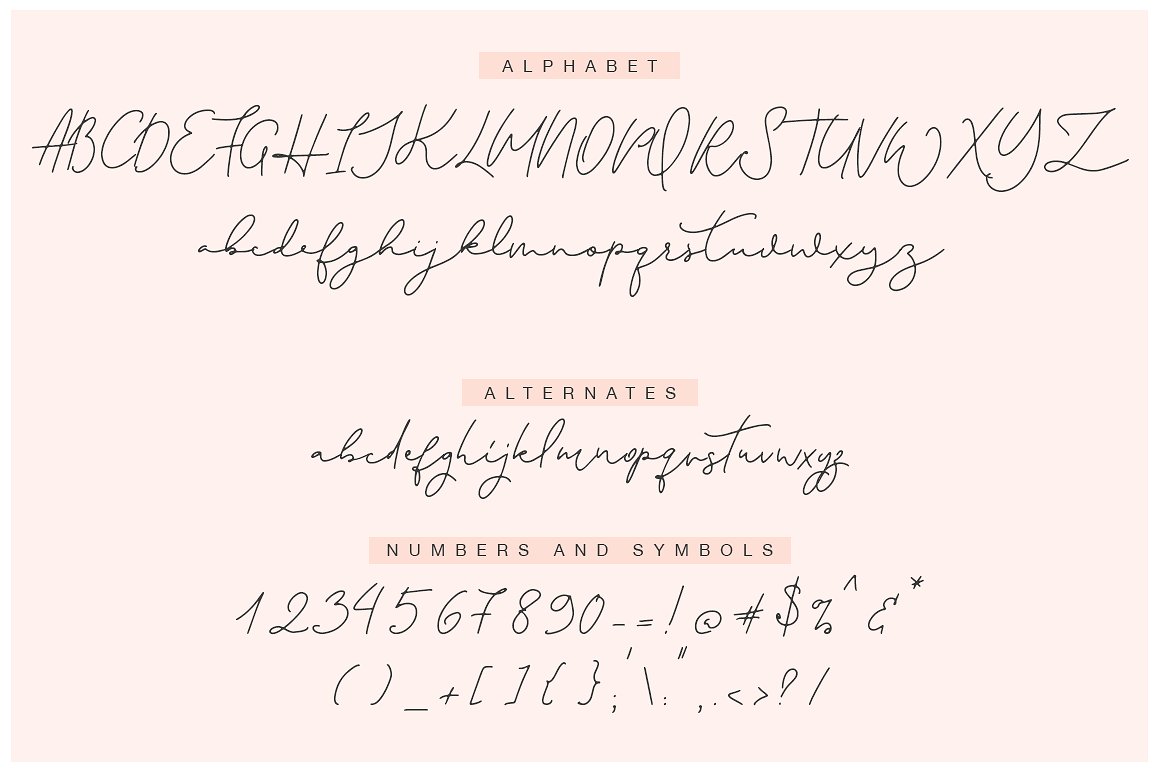 ALPHABET
ABCDEFGHIJKLMNOPQRSTUVWXYZ
abcdefghijklmnopqrstuvwxyz
ALTERNATES
abcdefghijklmnopqrstuvwxyz
NUMBERS AND SYMBOLS
1234567890-=!@#$%^&*
()_+[]{};'\:",.<>?/